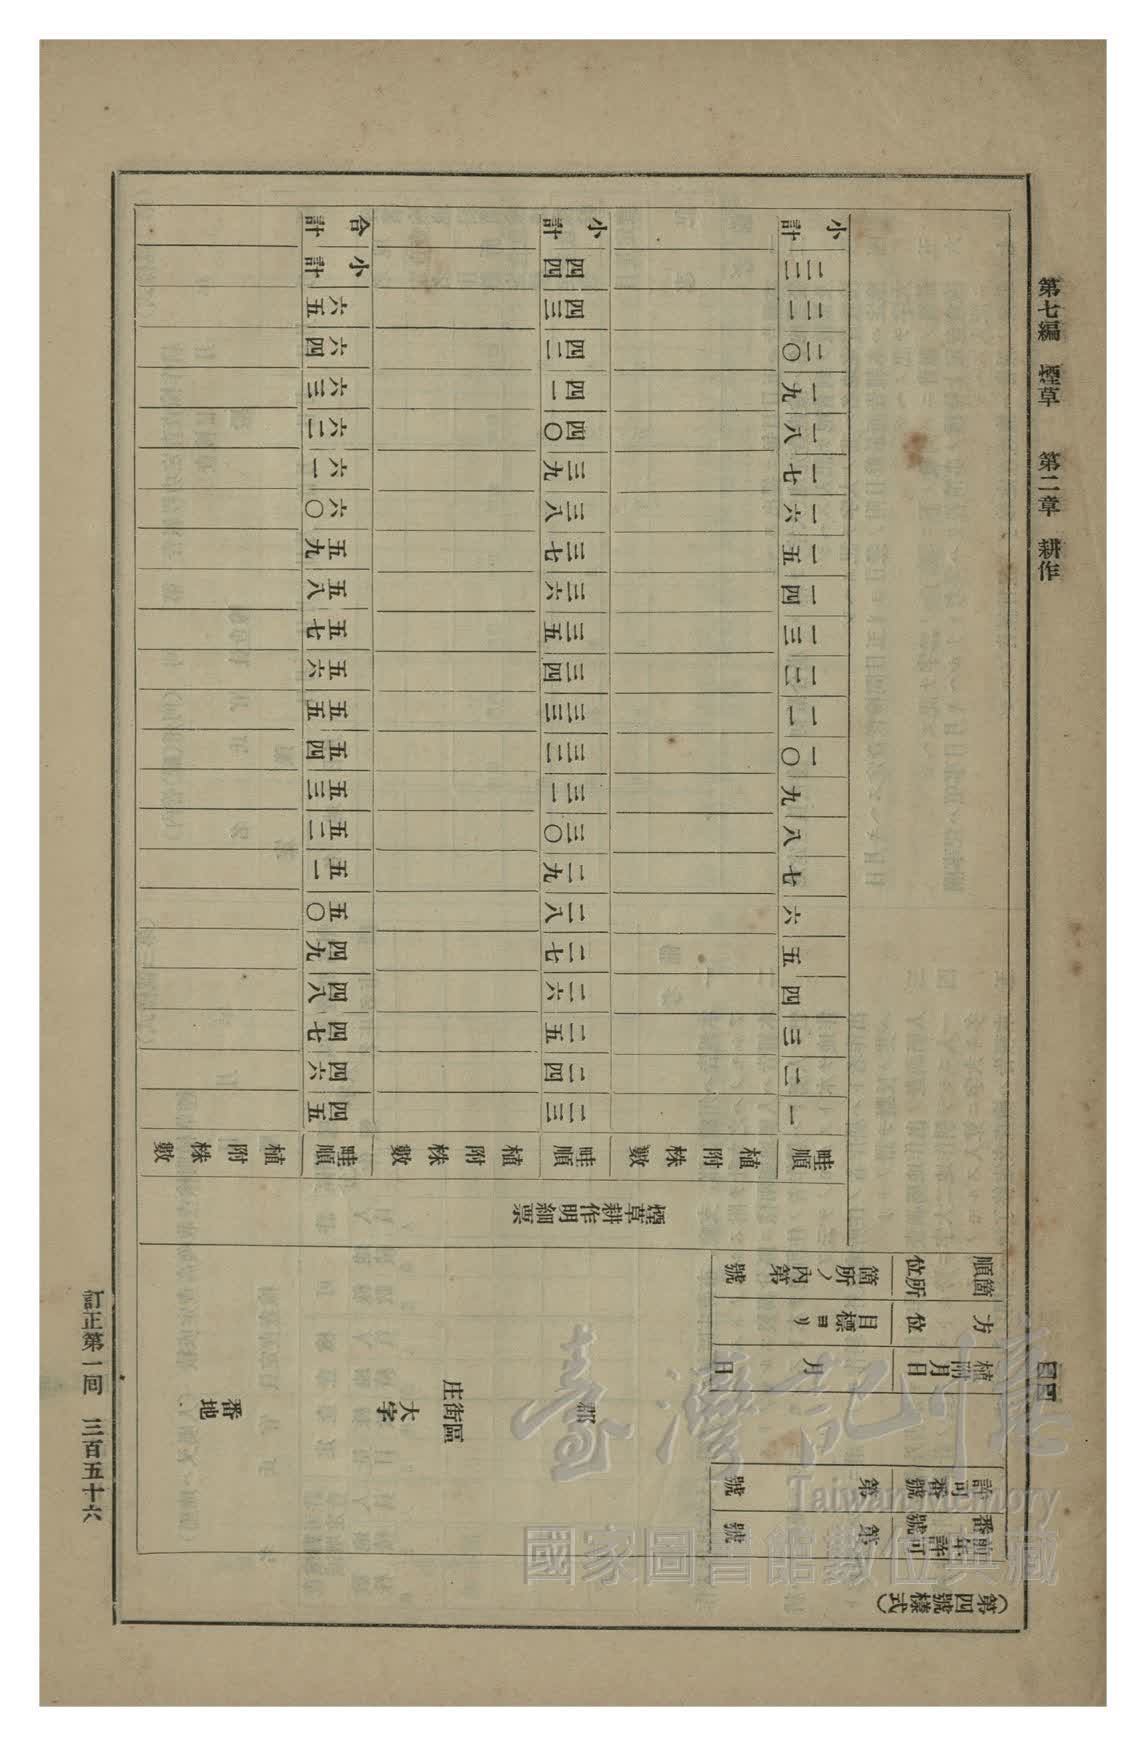 第七編　煙草　第二章　耕作
四四
（第四號樣式）
前年許可番號　第　號
許可番號　第　號
植附月日　月　日
方位　目標ヨリ
箇所順位　箇所ノ內第　號
郡
庄街區
大字
番地
煙草耕作明細票
畦順　一　二　三　四　五　六　七　八　九　一〇　一一　一二　一三　一四　一五　一六　一七　一八　一九　二〇　二一　二二　小計
植附株數
畦順　二三　二四　二五　二六　二七　二八　二九　三〇　三一　三二　三三　三四　三五　三六　三七　三八　三九　四〇　四一　四二　四三　四四　小計
植附株數
畦順　四五　四六　四七　四八　四九　五〇　五一　五二　五三　五四　五五　五六　五七　五八　五九　六〇　六一　六二　六三　六四　六五　小計　合計
植附株數
訂正第一回　三百五十六
臺灣記憶
Taiwan Memory
國家圖書館數位典藏